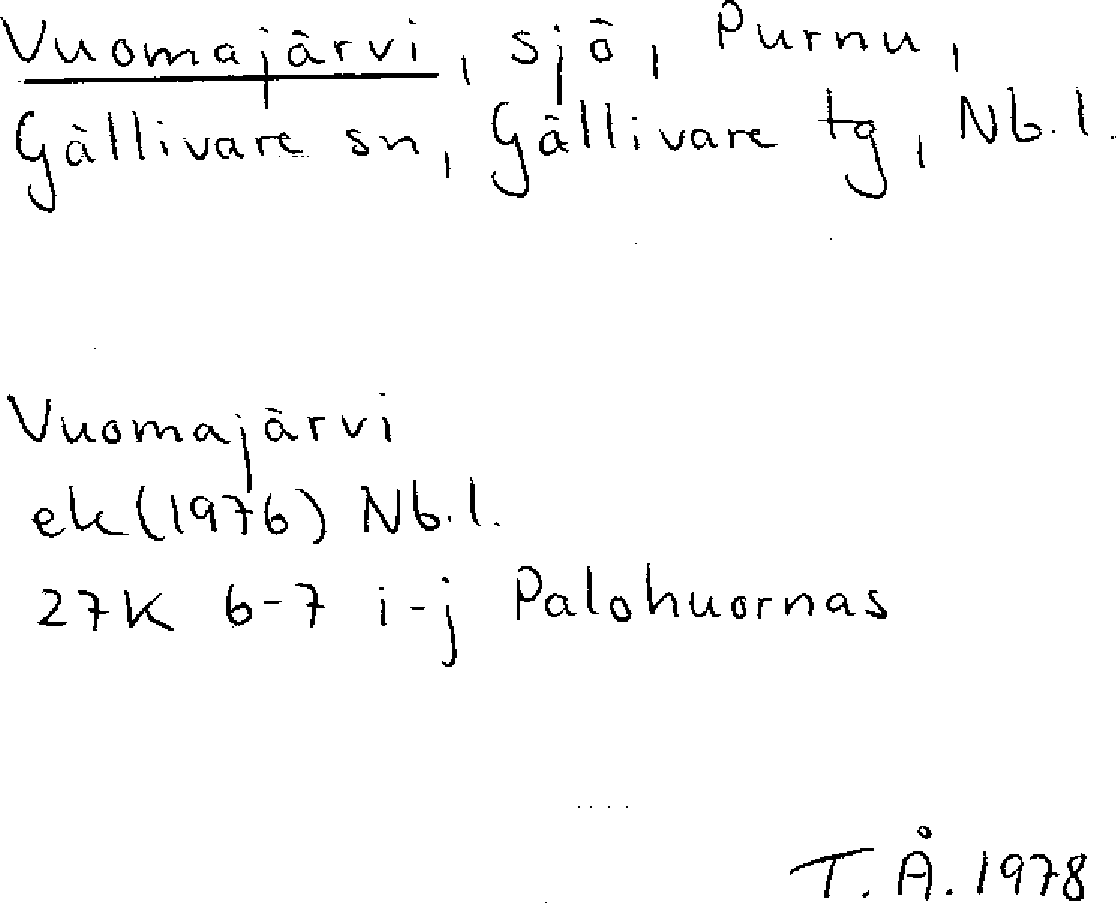 Vuomajärvi, sjö, Purnu,
Gällivare sn, Gällivare tg, Nb.l.
Vuomajärvi
ek (1976) Nb.l.
27K 6-7 i-j Palohuornas
T.Å. 1978